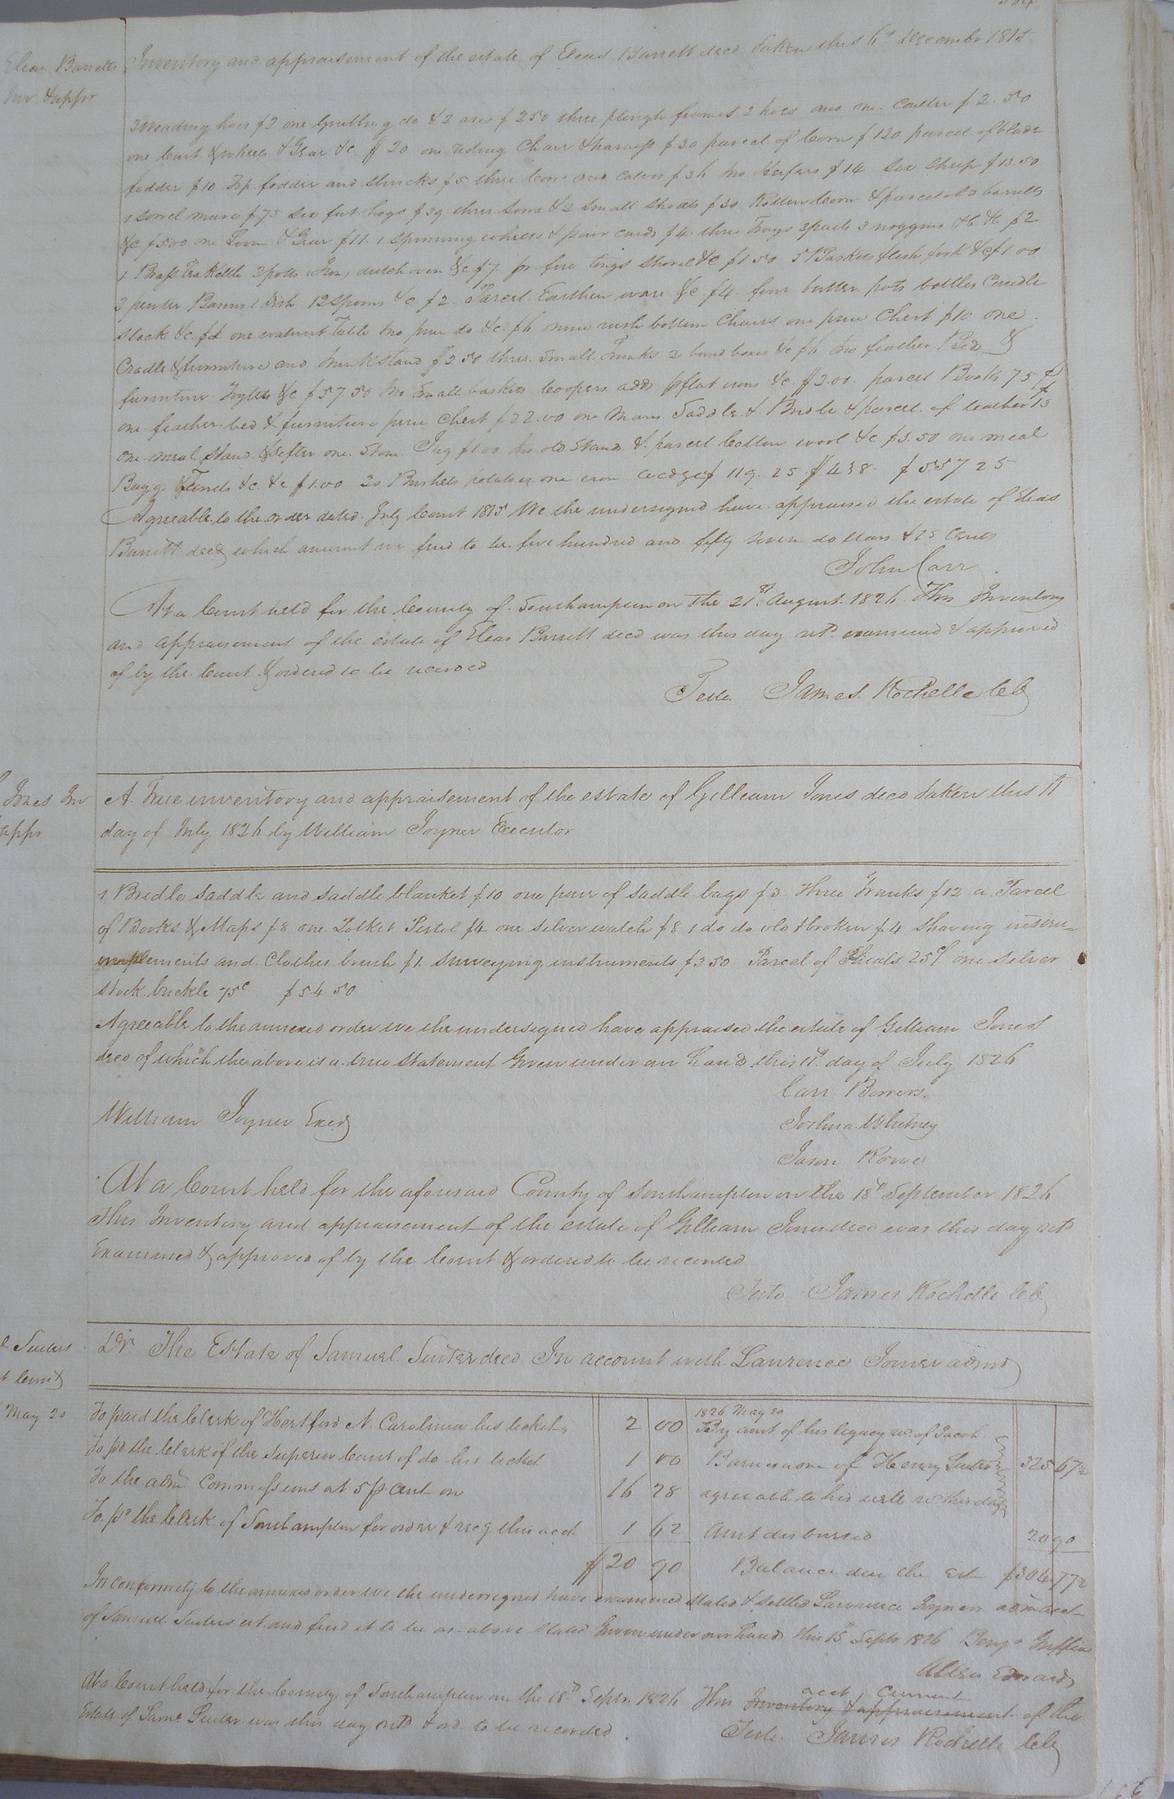 Inventory and appraisement of the estate of Elias Barrett decd taken this 6th December 1815
Elias Barretts
Inv &appr
3 weeding hoes $3 one Grubbing do & 2 axes $2 50 three plough frames 2 hoes and one Coulter $2. 50
one Cart & wheels & Gear &c $20 one riding Chair & harness $30 parcel of Corn $120 parcel of blade
fodder $10 Top fodder and shucks $5 three Cows and calves $36 two Heifers $14 six sheep $13 50
1 sorrel mare $75 six fat hogs $39 three sows & small shoats $30 Rotten Corn & parcel barrells
&c $5 00 one Loom & Gear $11. 1 Spinning wheel & pair cards $4. three Trays 2 pails 3 noggins &c $2
1 Brass Tea Kettle 2 potts dutch oven &c $7 pr fire tongs shovel &c $1 50 5 Baskets flesh fork &c $1 00
3 pewter Basins 1 Dish 12 Spoons &c $2 Parcel Earthen ware &c $4 four butter pots bottles Candle
stock &c $2 one walnut Table two pine do &c $6 nine rush bottom Chairs one pine Chest $10 one
Cradle & furniture and Ink stand $2 50 three small Trunks 2 band boxes &c $6 two feather Beds &
furniture &c $57 50 two small baskets Coopers adds flat irons &c $3.00 parcel Books 75 cts
one feather bed & furniture pine Chest $22.00 one Mans Saddle & Bridle & parcel of leather $15
one meal stand & sifter one Stone Jug $1 00 two old Stands & parcel Cotton wool &c $3.50 one meal
Bagg &c &c $1.00 20 Bushels potatoes one iron wedge $119. 25 $438. $557 25
Agreeable to the order dated July Court 1815 We the undersigned have appraised the estate of Elias
Barrett decd which amount we find to be five hundred and fifty seven dollars & 25 Cents
John Carr
At a Court held for the County of Southampton on the 21st August 1826 This Inventory
and appraisement of the estate of Elias Barrett decd was this day retd examined & approved
of by the Court & ordered to be recorded
Teste James Rochelle CC
Jones Inv
appr
A True inventory and appraisement of the estate of Gilliam Jones decd taken this 11
day of July 1826 by William Joyner Executor
1 Bridle saddle and saddle blanket $10 one pair of saddle bags $3 three Trunks $12 a Parcel
of Books & Maps $8 one Pocket Pistol $4 one silver watch $8 1 do do old & broken $4 shaving instru-
ments and Clothes brush $1. surveying instruments $3 50 Parcel of Phials 25 cts one silver
stock buckle 75c $54 50
Agreeable to the annexed order we the undersigned have appraised the estate of Gilliam Jones
decd of which the above is a true statement Given under our hands this 11th day of July 1826
Carr Bowers
William Joyner Exer
Joshua Whitney
Jason Rowe
At a Court held for the aforesaid County of Southampton on the 18th September 1826
This Inventory and appraisement of the estate of Gilliam Jones decd was this day retd
Examined & approved of by the Court & ordered to be recorded
Teste James Rochelle CC
Suiters
Dr. The Estate of Samuel Suiter decd In account with Lawrence Joiner admr
May 20
To paid the Clerk of Hertford N. Carolina his ticket 2 00
1826 May 20
By amt of his legacy recd of Jacob
To pd the Clerk of the Superior Court of do his ticket 1 00
Barnes one of Henry Suiters 325 67½
To the admr Commissions at 5 pCent on 16 28
agreeable to his will
To pd the Clerk of Southampton for order & recg this acct 1 62
Amt disbursed 20 90
$20 90
Balance due the Est $304 77½
In conformity to the annexed order we the undersigned have examined stated & settled Lawrence Joyner admr acct
of Samuel Suiters est and find it to be as above stated Given under our hands this 15 Septr 1826 Benja Griffin
Allen Edwards
acct current
At a Court held for the County of Southampton on the 18th Septr 1826 This Inventory & appraisement of the
Estate of Saml Suiter was this day retd & ord to be recorded
Teste James Rochelle CC